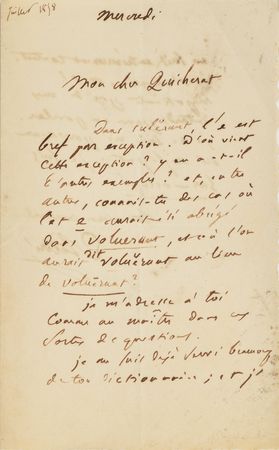 Juillet 1858
Mercredi
Mon cher Quicherat
Dans tulĕrunt, l'e est
bref par exception. D'où vient
cette exception ? y en a-t-il
d'autres exemples ? et, entre
autres, connais-tu des cas où
l'at e aurait été abrégé
dans voluerunt, et où l'on
aurait dit voluĕrunt au lieu
de voluērunt ?
je m'adresse à toi
comme au maître dans ces
sortes de questions.
je me suis déjà servi beaucoup
de ton dictionnaire ; et je